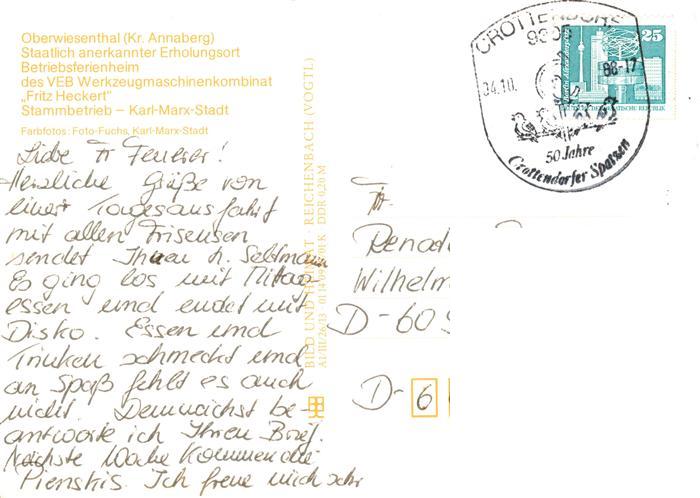 Oberwiesenthal (Kr. Annaberg)
Staatlich anerkannter Erholungsort
Betriebsferienheim
des VEB Werkzeugmaschinenkombinat
„Fritz Heckert"
Stammbetrieb – Karl-Marx-Stadt
Farbfotos: Foto-Fuchs, Karl-Marx-Stadt
Liebe Fr Feuerer!
Herzliche Grüße von
einer Tagesausfahrt
mit allen Friseusen
sendet Ihnen A. Seltmann
Es ging los mit Mittag-
essen und endet mit
Disko. Essen und
Trinken schmeckt und
an Spaß fehlt es auch
nicht. Demnächst be-
antworte ich Ihren Brief.
Nächste Woche kommen die
Pienskis. Ich freue mich sehr
BILD UND HEIMAT · REICHENBACH (VOGTL)
A1/III/26/13 DDR 0,20 M
GROTTENDORF
04.10. 88-17
50 Jahre
Crottendorfer Spatzen
25
Fr.
Wilhelm
D-60
D-6